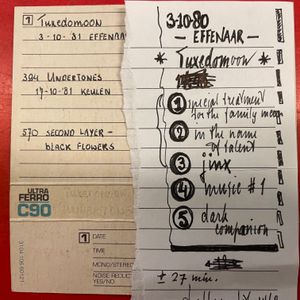 1 Tuxedomoon
3-10-'81 EFFENAAR
394 UNDERTONES
17-10-'81 KEULEN
570 SECOND LAYER -
BLACK FLOWERS
ULTRA
FERRO
C90
1 DATE
TIME
MONO/STEREO
NOISE REDUCT
YES/NO
3-10-80
- EFFENAAR -
* Tuxedomoon *
1 special treatment
for the family man
2 in the name
of talent
3 jinx
4 music #1
5 dark
companion
± 27 min.